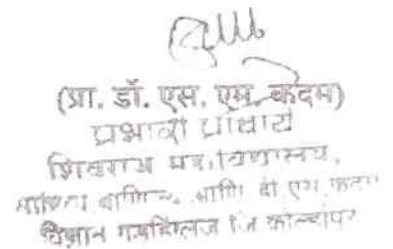 (प्रा. डॉ. एस. एम. कदम)
प्रभारी प्राचार्य
शिवराज महाविद्यालय,
वाणिज्य आणि डी एस कदम
विज्ञान गडहिंग्लज जि कोल्हापूर